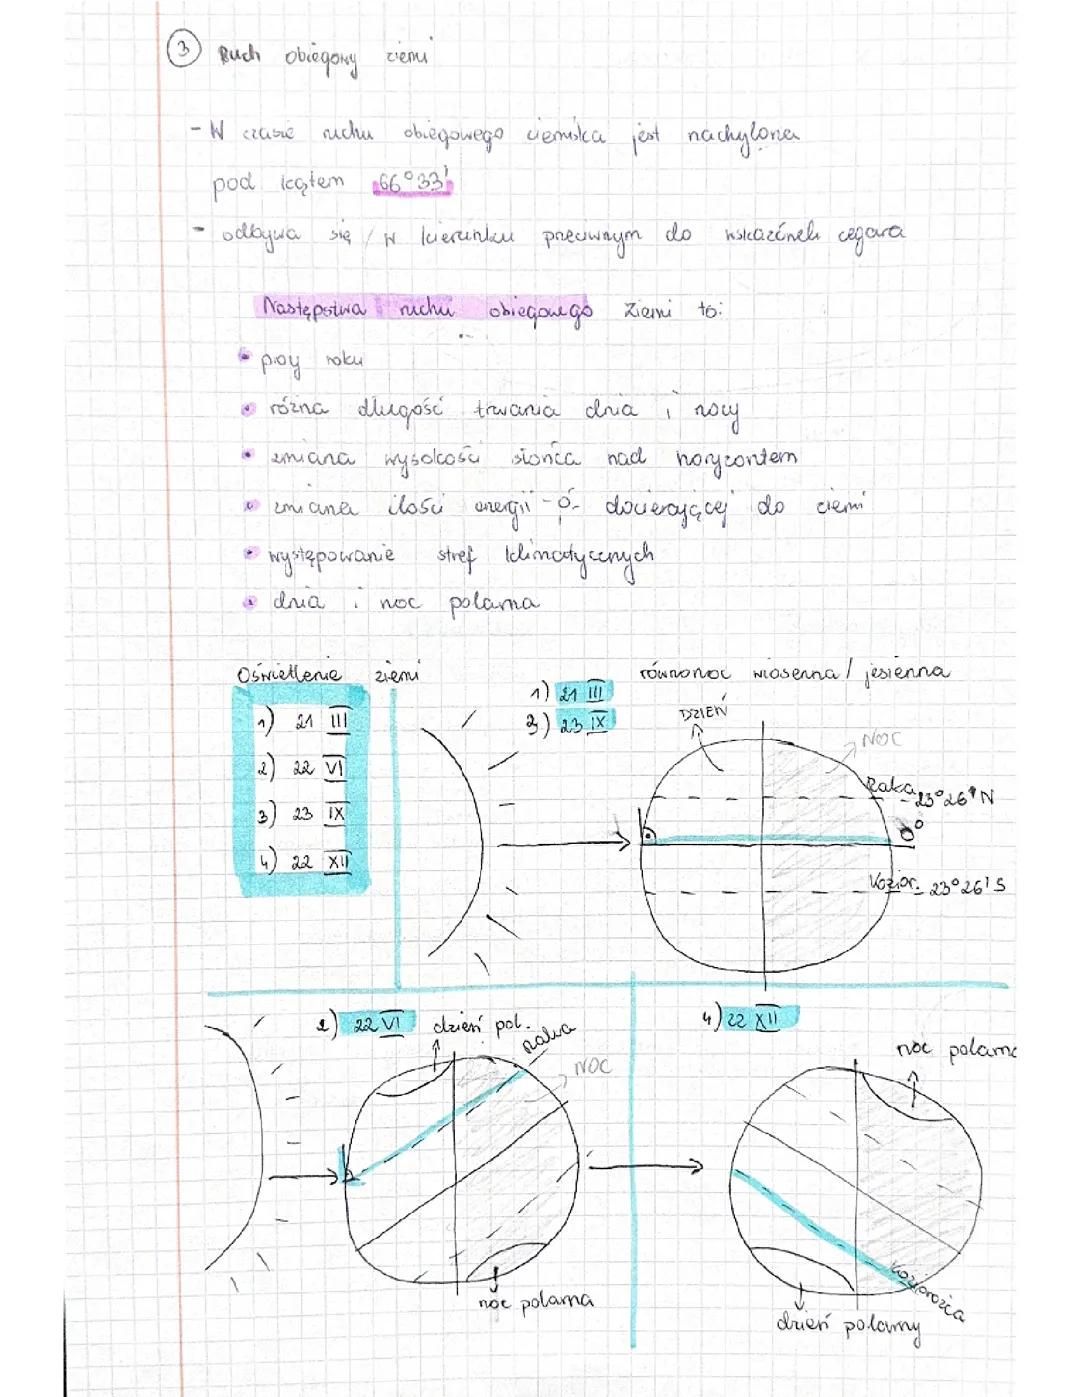 3 Ruch obiegowy ziemi
- W czasie ruchu obiegowego ziemska jest nachylona
pod kątem 66°33'
- odbywa się w kierunku przeciwnym do wskazówek zegara
Następstwa ruchu obiegowego Ziemi to:
• pory roku
• różna długość trwania dnia i nocy
• zmiana wysokości słońca nad horyzontem
• zmiana ilości energii -o- docierającej do ziemi
• występowanie stref klimatycznych
• dnia i noc polarna
Oświetlenie ziemi
1) 21 III
2) 22 VI
3) 23 IX
4) 22 XII
1) 21 III
3) 23 IX
równonoc wiosenna / jesienna
DZIEŃ
NOC
Raka 23°26' N
0°
Kozior. 23°26' S
2) 22 VI
dzień pol.
Raka
NOC
noc polarna
4) 22 XII
noc polarna
Koziorożca
dzień polarny